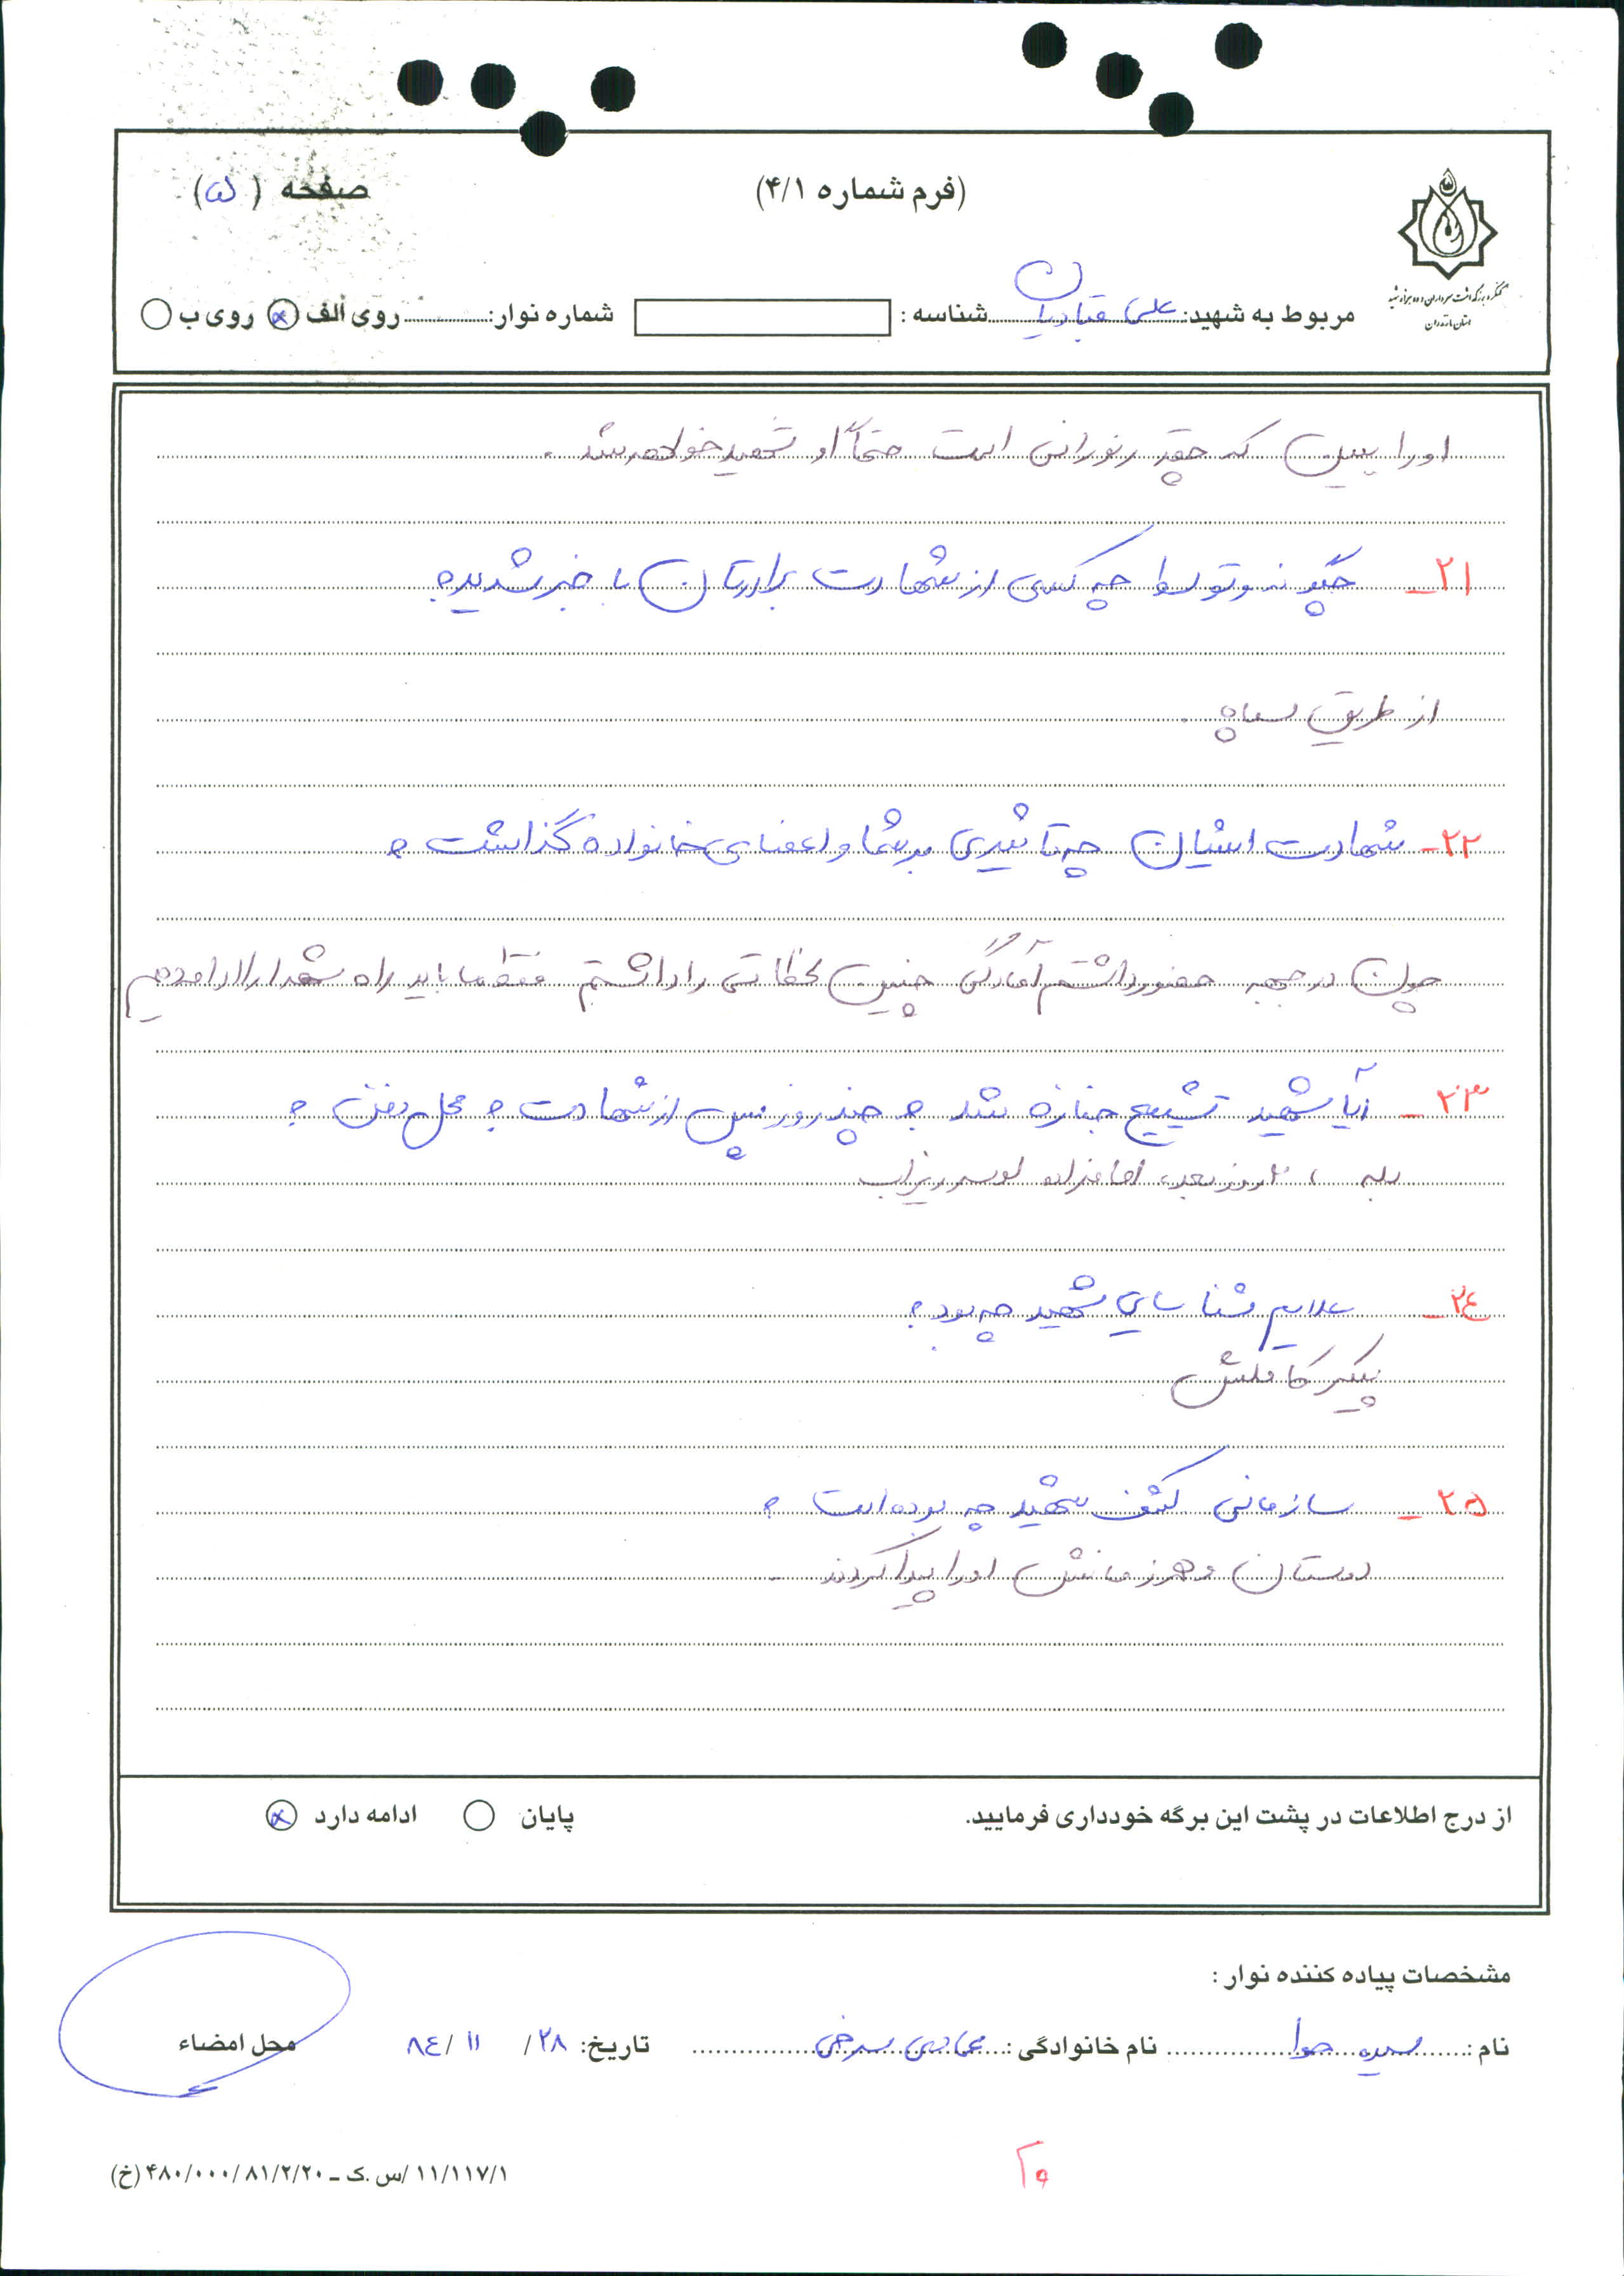 (فرم شماره ۴/۱)
صفحه (۵)
کنگره بزرگداشت سرداران و ده هزار شهید
استان مازندران
مربوط به شهید: علی قبادیان شناسه : شماره نوار: روی الف روی ب
او را ببین که چقدر نورانی است حتماً او شهید خواهد شد .
۲۱- چگونه و توسط چه کسی از شهادت برادرتان با خبر شدید؟
از طریق سپاه .
۲۲- شهادت ایشان چه تاثیری بر شما و اعضای خانواده گذاشت ؟
چون در جبهه حضور داشتم آمادگی چنین لحظاتی را داشتم فقط ما باید راه شهدا را ادامه دهیم
۲۳- آیا شهید تشییع جنازه شد ؟ چند روز پس از شهادت ؟ محل دفن ؟
بله ، روز بعد، امامزاده
۲۴- علایم شناسایی شهید چه بود ؟
پیکر کاملش
۲۵- سازمانی کشف شهید چه بوده است ؟
دوستان و همرزمانش او را پیدا کردند
از درج اطلاعات در پشت این برگه خودداری فرمایید. پایان ادامه دارد
مشخصات پیاده کننده نوار :
نام : سیده حوا نام خانوادگی : تاریخ: ۲۸/ ۱۱ /۸۴ محل امضاء
۱۱/۱۱۷/۱ /س.ک ـ ۴۸۰/۰۰۰/۸۱/۲/۲۰ (خ)